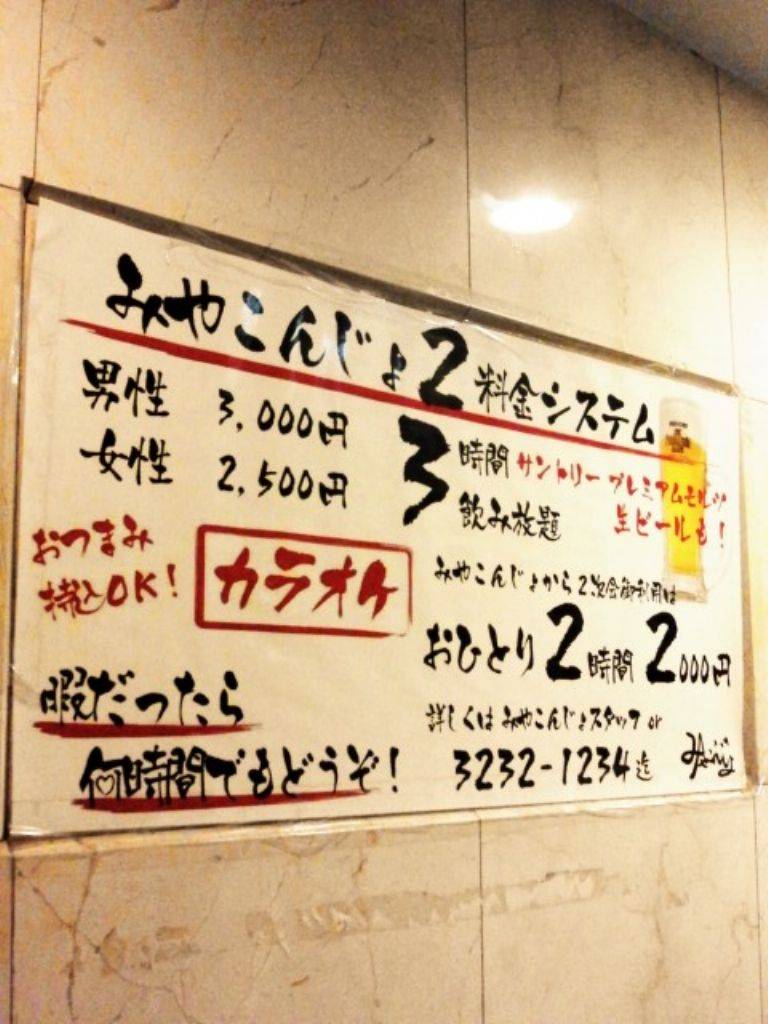 みやこんじょ2 料金システム
男性 3,000円
女性 2,500円
3時間 飲み放題
サントリー プレミアムモルツ
生ビールも!
おつまみ
持込OK!
カラオケ
みやこんじょから2次会御利用は
おひとり2時間2000円
暇だったら
何時間でもどうぞ!
詳しくはみやこんじょスタッフ or
3232-1234迄
みやこんじょ